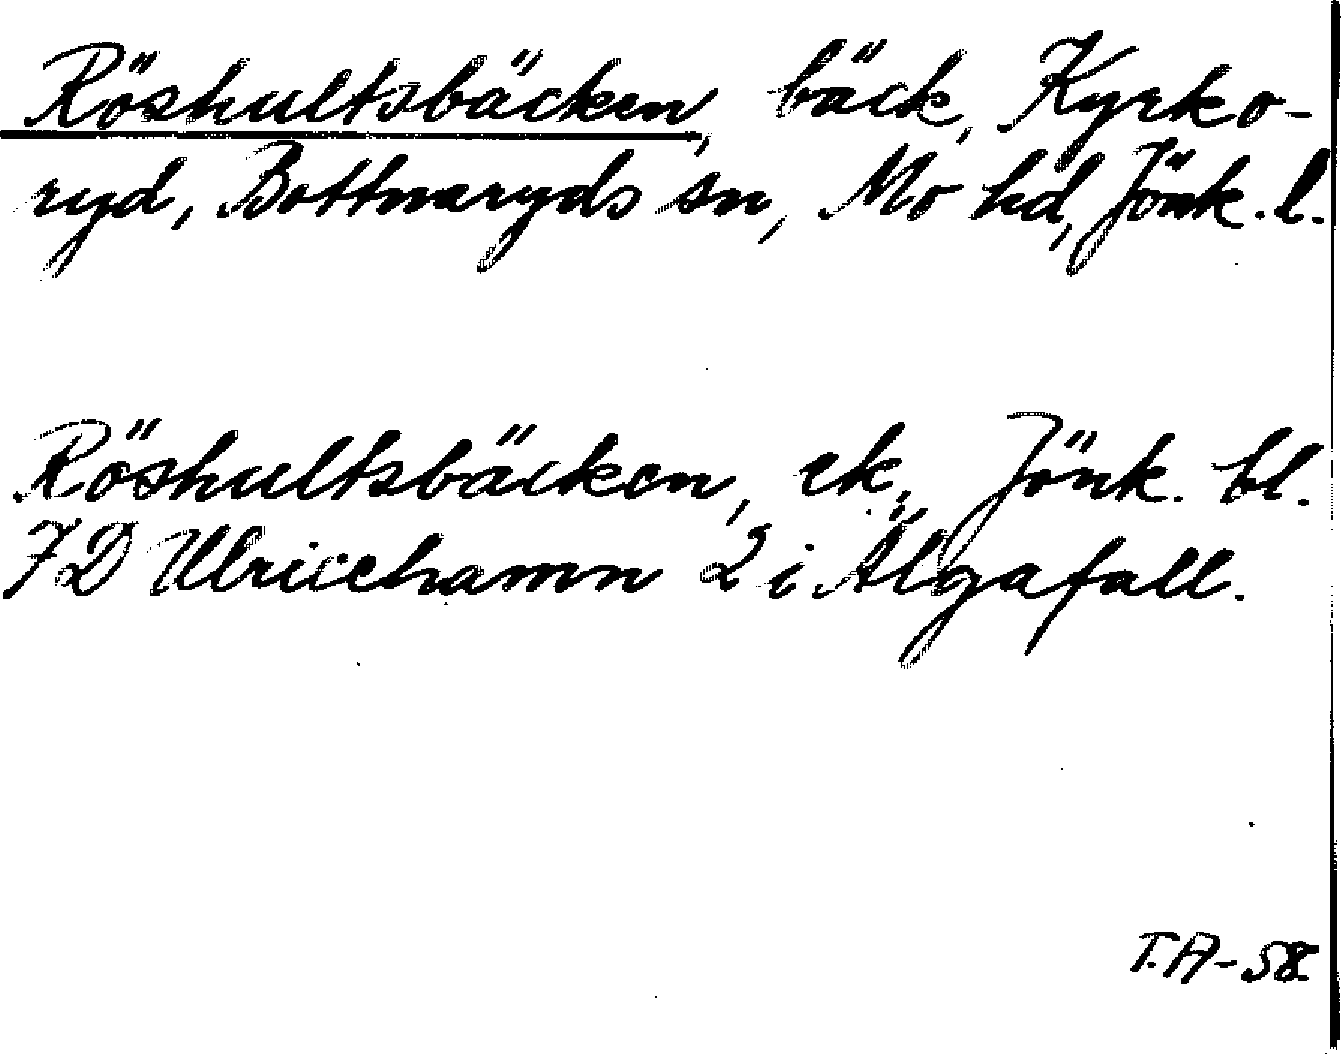 Röshultsbäcken, bäck, Kyrko-
ryd, Bottnaryds sn, Mo hd, Jönk. l.
Röshultsbäcken, ek, Jönk. bl.
7D Ulricehamn 2 i Älgafall.
T.A-58.